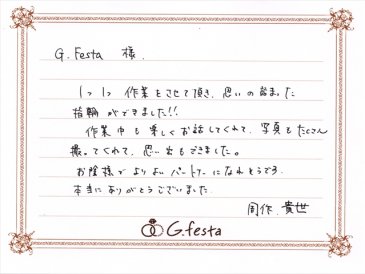 G.Festa 様.
1つ1つ 作業をさせて頂き、思いの詰まった
指輪ができました!!
作業中も楽しくお話してくれて、写真もたくさん
撮ってくれて、思い出もできました。
お陰様でよりよいパートナーになれそうです.
本当にありがとうございました.
貴世
G.festa